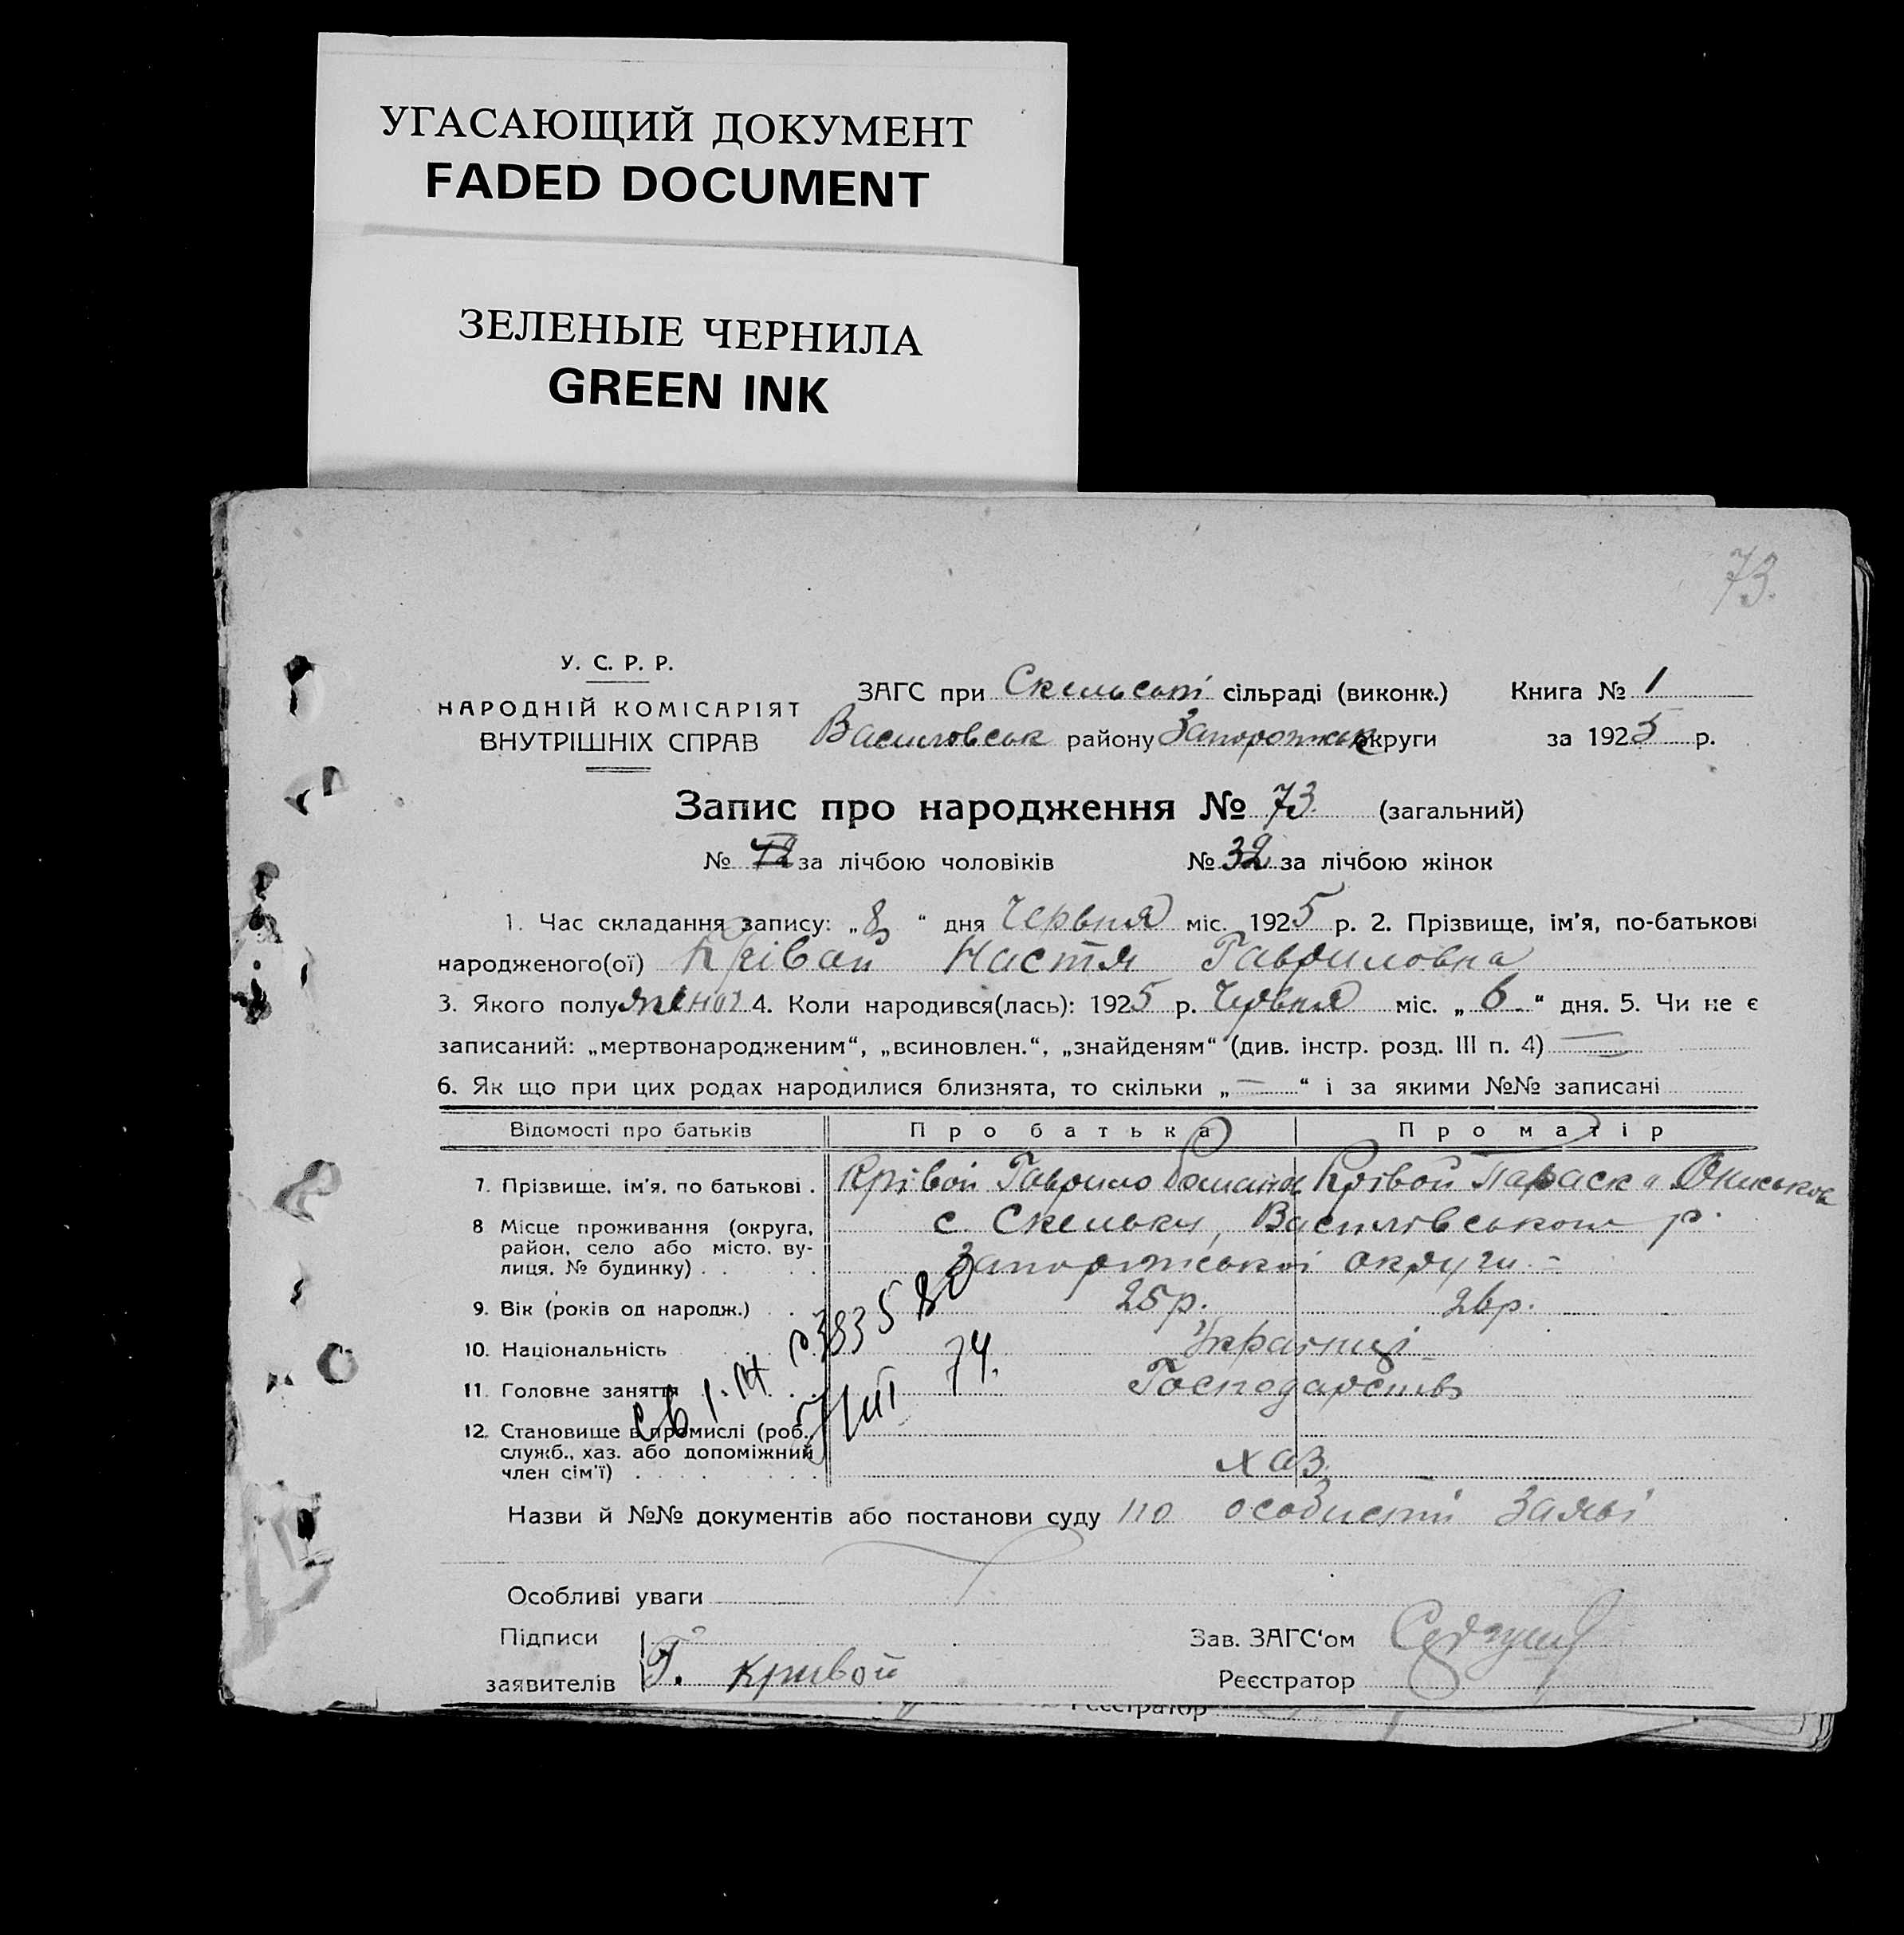 УГАСАЮЩИЙ ДОКУМЕНТ
FADED DOCUMENT
ЗЕЛЕНЫЕ ЧЕРНИЛА
GREEN INK
73.
У. С. Р. Р.
НАРОДНІЙ КОМІСАРІЯТ
ВНУТРІШНІХ СПРАВ
ЗАГС при Скельські сільраді (виконк.) Книга № 1
Василовськ району Запорожськ округи за 1925 р.
Запис про народження № 73. (загальний)
№ за лічбою чоловіків № 32 за лічбою жінок
1. Час складання запису: „8“ дня Червня міс. 1925 р. 2. Прізвище, ім'я, по-батькові
народженого(ої) Крівой Настя Гавриловна
3. Якого полу жіноч 4. Коли народився(лась): 1925 р. Червня міс. „6“ дня. 5. Чи не є
записаний: „мертвонародженим“, „всиновлен.“, „знайденям“ (див. інстр. розд. III п. 4) —
6. Як що при цих родах народилися близнята, то скільки „—“ і за якими №№ записані
Відомості про батьків Про батька Про матір
7. Прізвище, ім'я, по батькові . Крівой Гаврило Крівой Параска
8 Місце проживання (округа, район, село або місто, вулиця, № будинку) . . с. Скельки, Василівського р.
Запоріжської округи
9. Вік (років од народж.) . . 25 р. 26 р.
10. Національність Українці
11. Головне заняття . . Господарство
12. Становище в промислі (роб., служб., хаз. або допоміжний член сім'ї) . хаз.
74.
Назви й №№ документів або постанови суду по особисті заяві
Особливі уваги
Підписи
заявителів Г. Кривой
Зав. ЗАГС'ом
Реєстратор
Реєстратор